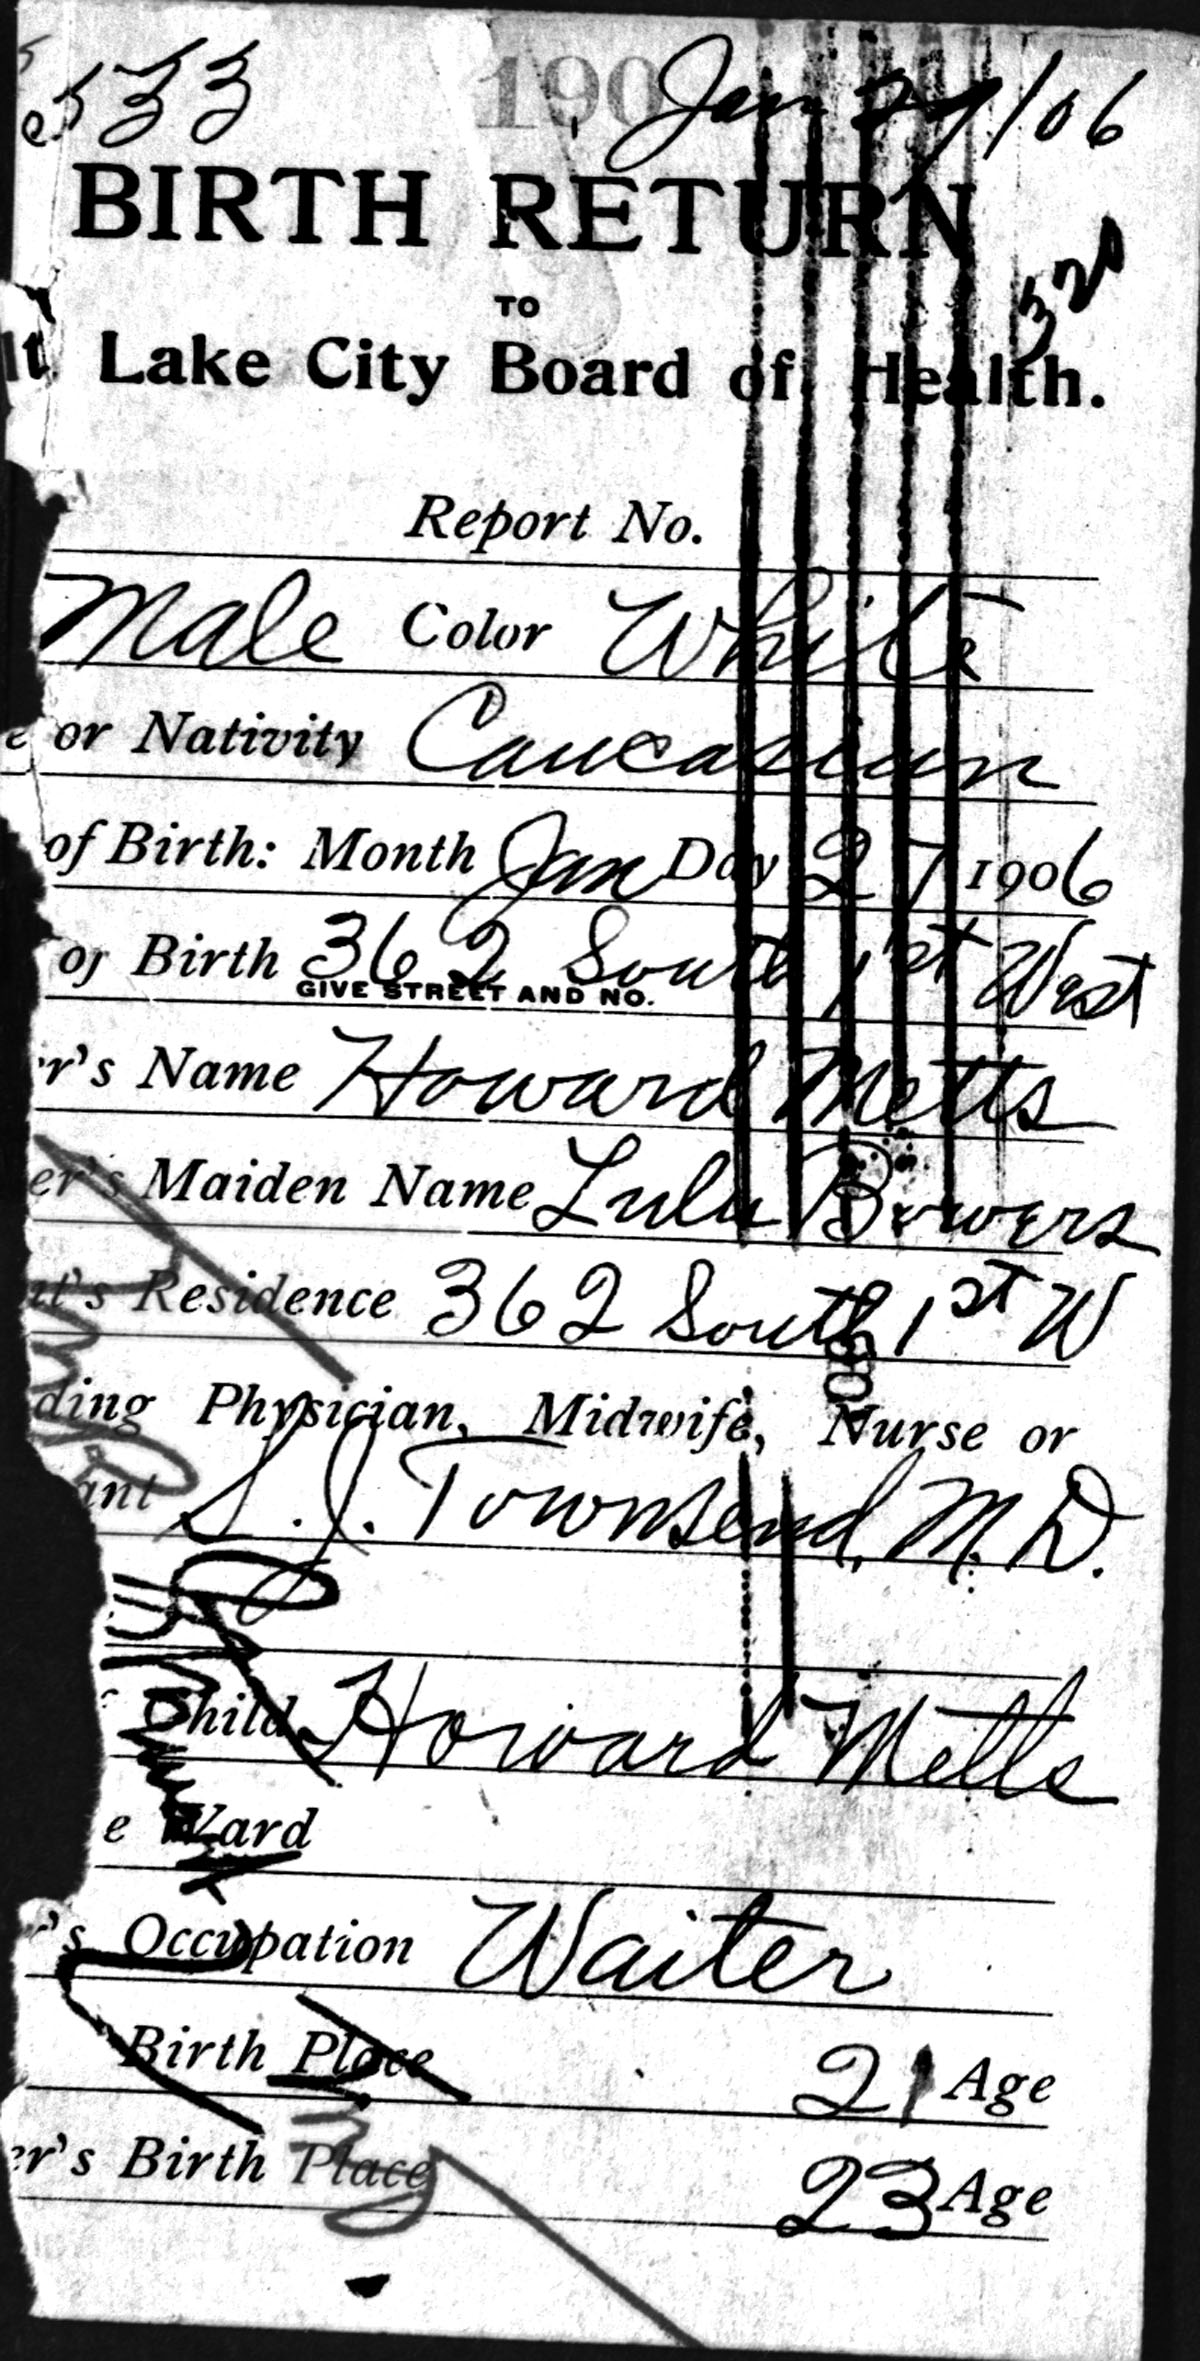 533 190 Jan 27/06
BIRTH RETURN
320
TO
lt Lake City Board of Health.
Report No.
Male Color White
e or Nativity Caucasian
of Birth: Month Jan Day 27 1906
of Birth 362 South 1st West
GIVE STREET AND NO.
r's Name Howard Metts
er's Maiden Name Lulu Bowers
nt's Residence 362 South 1st W
ding Physician, Midwife, Nurse or
ant S. J. Townsend, M. D.
f Child Howard Metts
e Ward
r's Occupation Waiter
Birth Place 21 Age
er's Birth Place 23 Age